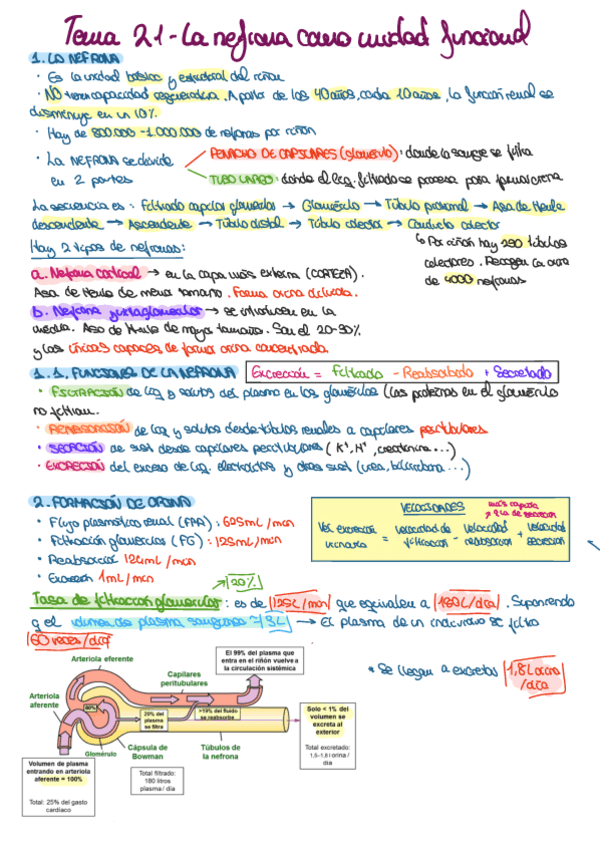 Tema 21 - La nefrona como unidad funcional
1. LA NEFRONA
· Es la unidad básica y estructural del riñón
· NO tienen capacidad regenerativa. A partir de los 40 años, cada 10 años, la función renal se
disminuye en un 10%.
· Hay de 800.000 - 1.000.000 de nefronas por riñón
· La NEFRONA se divide
en 2 partes
PENACHO DE CAPILARES (glomérulo): donde la sangre se filtra
TUBO LARGO: donde el liq. filtrado se procesa para formar orina
La secuencia es: Filtrado capilar glomerular → Glomérulo → Túbulo proximal → Asa de Henle
descendente → Ascendente → Túbulo distal → Túbulo colector → Conducto colector
↳ Por riñón hay 250 túbulos
colectores. Recogen la orina
de 4000 nefronas
Hay 2 tipos de nefronas:
a. Nefrona cortical → en la capa más externa (CORTEZA).
Asa de Henle de menor tamaño. Forma orina diluida.
b. Nefrona yuxtaglomerular → se introducen en la
médula. Asa de Henle de mayor tamaño. Son el 20-30%
y las únicas capaces de formar orina concentrada.
1.1. FUNCIONES DE LA NEFRONA
Excreción = Filtrado - Reabsorbido + Secretado
· FILTRACIÓN de liq y solutos del plasma en los glomérulos (las proteínas en el glomérulo
no filtran.
· REABSORCIÓN de liq y solutos desde túbulos renales a capilares peritubulares
· SECRECIÓN de sust desde capilares peritubulares (K⁺, H⁺, creatinina...)
· EXCRECIÓN del exceso de liq. electrolitos y otras sust (urea, bilirrubina...)
2. FORMACIÓN DE ORINA
· Flujo plasmático renal (FPR): 625mL/min
· Filtración glomerular (FG): 125mL/min
· Reabsorción 124mL/min
· Excreción 1mL/min
VELOCIDADES
más rápida
q la de secreción
Vel. excreción urinaria = velocidad de filtración - velocidad reabsorción + velocidad secreción
20%
Tasa de filtración glomerular: es de 125L/min que equivalen a 180L/día. Suponiendo
q el volumen de plasma sanguíneo ≈ 3L → El plasma de un individuo se filtra
60 veces/día
* Se llegan a excretar 1,8L orina
/día
El 99% del plasma que
entra en el riñón vuelve a
la circulación sistémica
Arteriola eferente
Capilares
peritubulares
Arteriola
aferente
80%
20% del
plasma
se filtra
>19% del fluido
se reabsorbe
Solo < 1% del
volumen se
excreta al
exterior
Total excretado:
1,5-1,8 l orina /
día
Glomérulo
Cápsula de
Bowman
Túbulos de
la nefrona
Volumen de plasma
entrando en arteriola
aferente = 100%
Total: 25% del gasto
cardíaco
Total filtrado:
180 litros
plasma / día